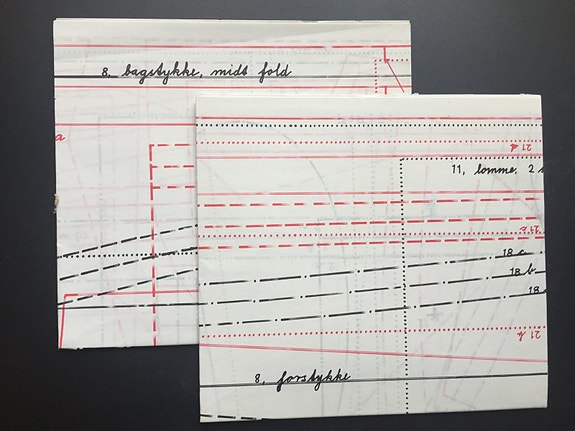 8. bagstykke, midt fold
a
21 d
11, lomme, 2
21 c
18 c
18 b
18
21 b
8, forstykke